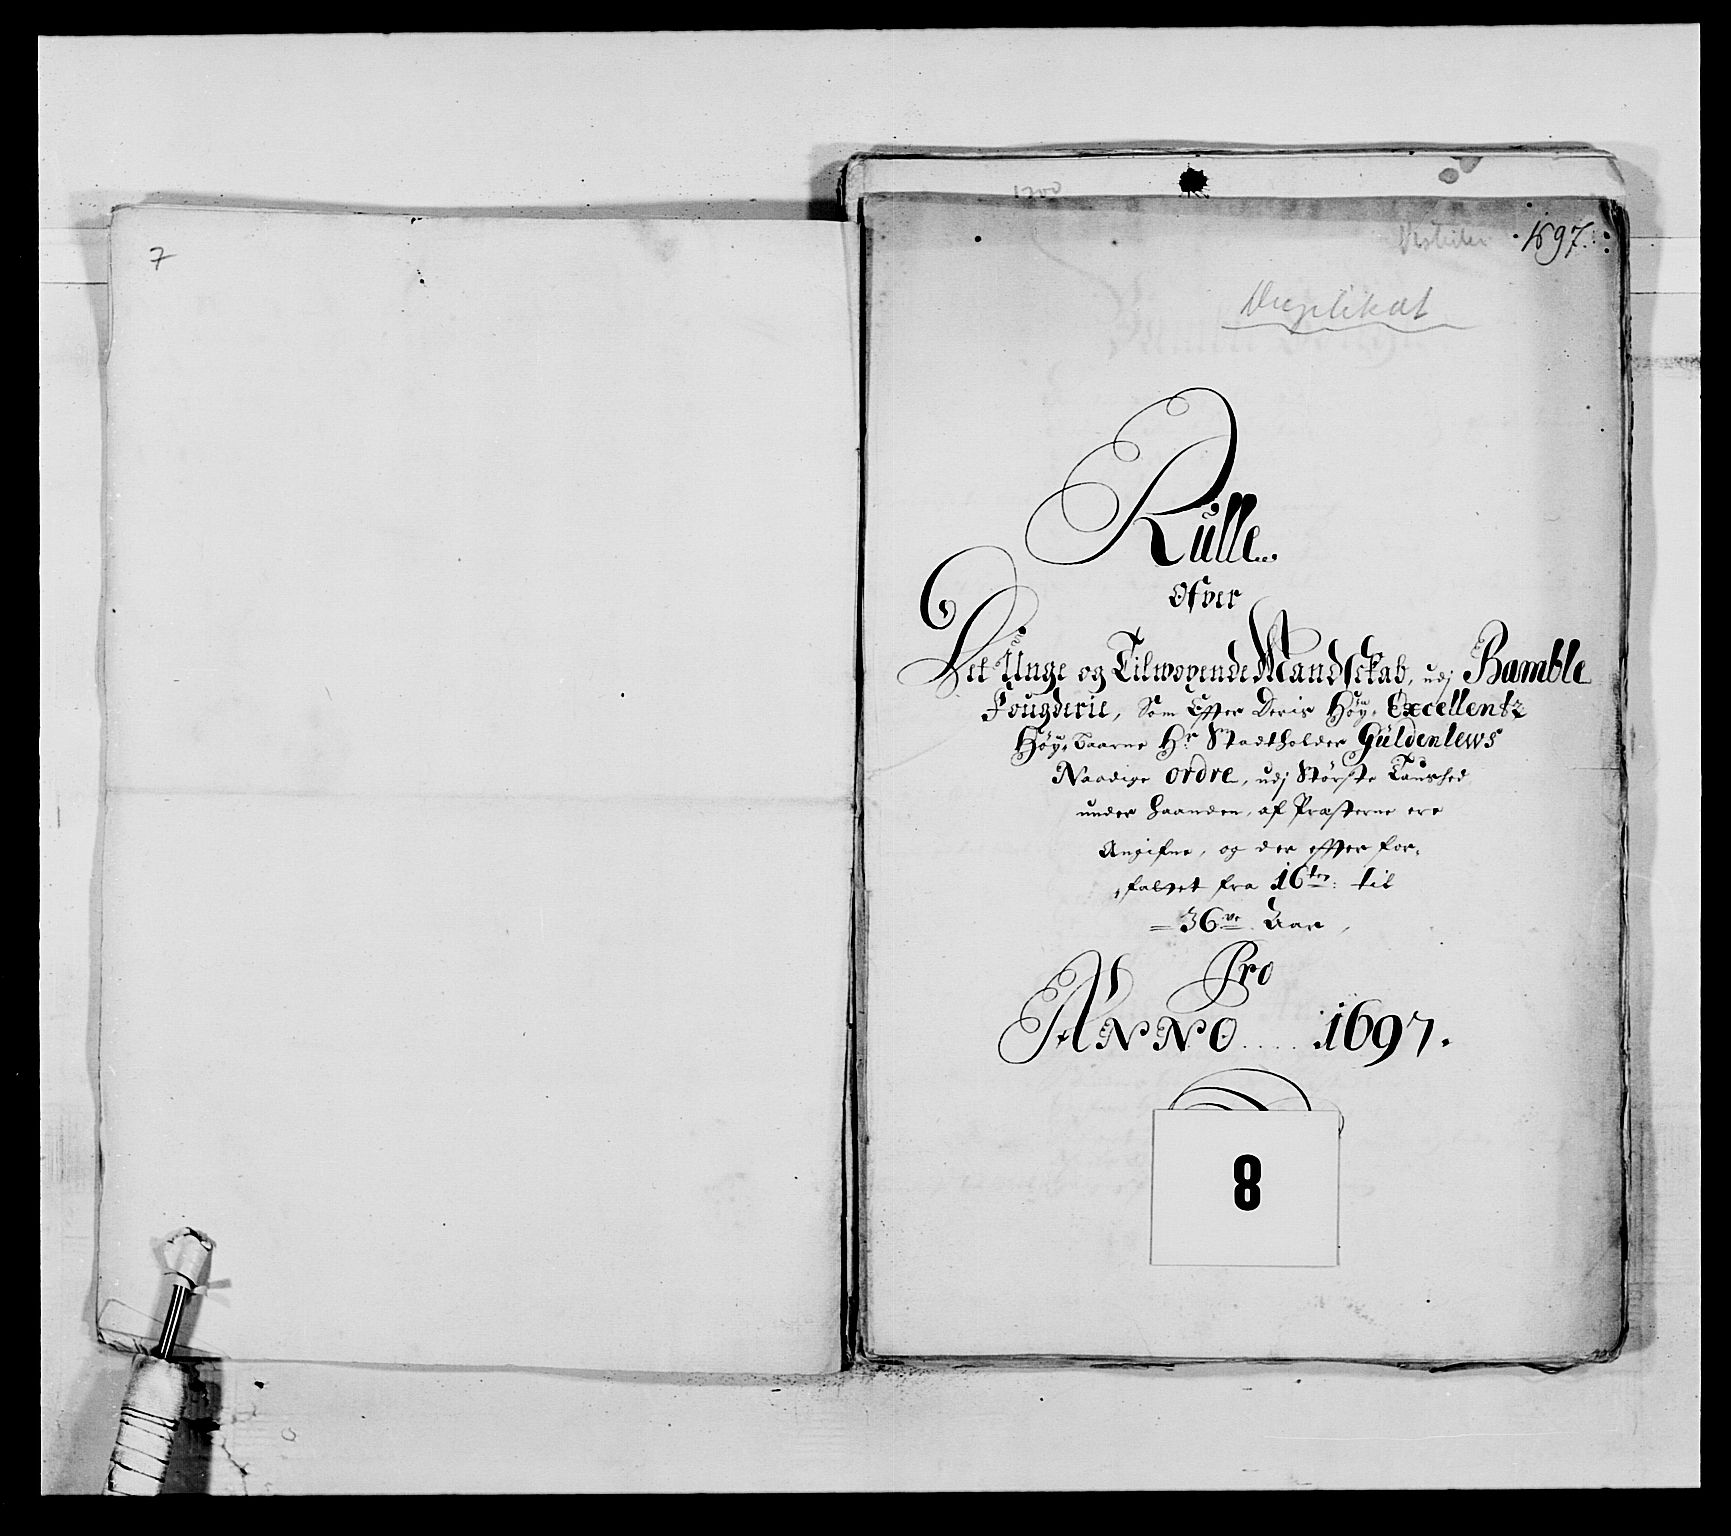 7
1700
1697.
Duplikat
Rulle
Ofver
Det Unge og Tilvoxende Mandskab, udj Bamble
Fougderie, Som Effter Deris Höy Excellentz
Höy-Baarne Hr Stadtholder Güldenlews
Naadige ordre, udj Störste Taushed
under haanden, af Præsterne ere
Angifne, og der effter for-
fattet fra 16ten: til
36ve Aar,
Pro
ANNO .... 1697.
8